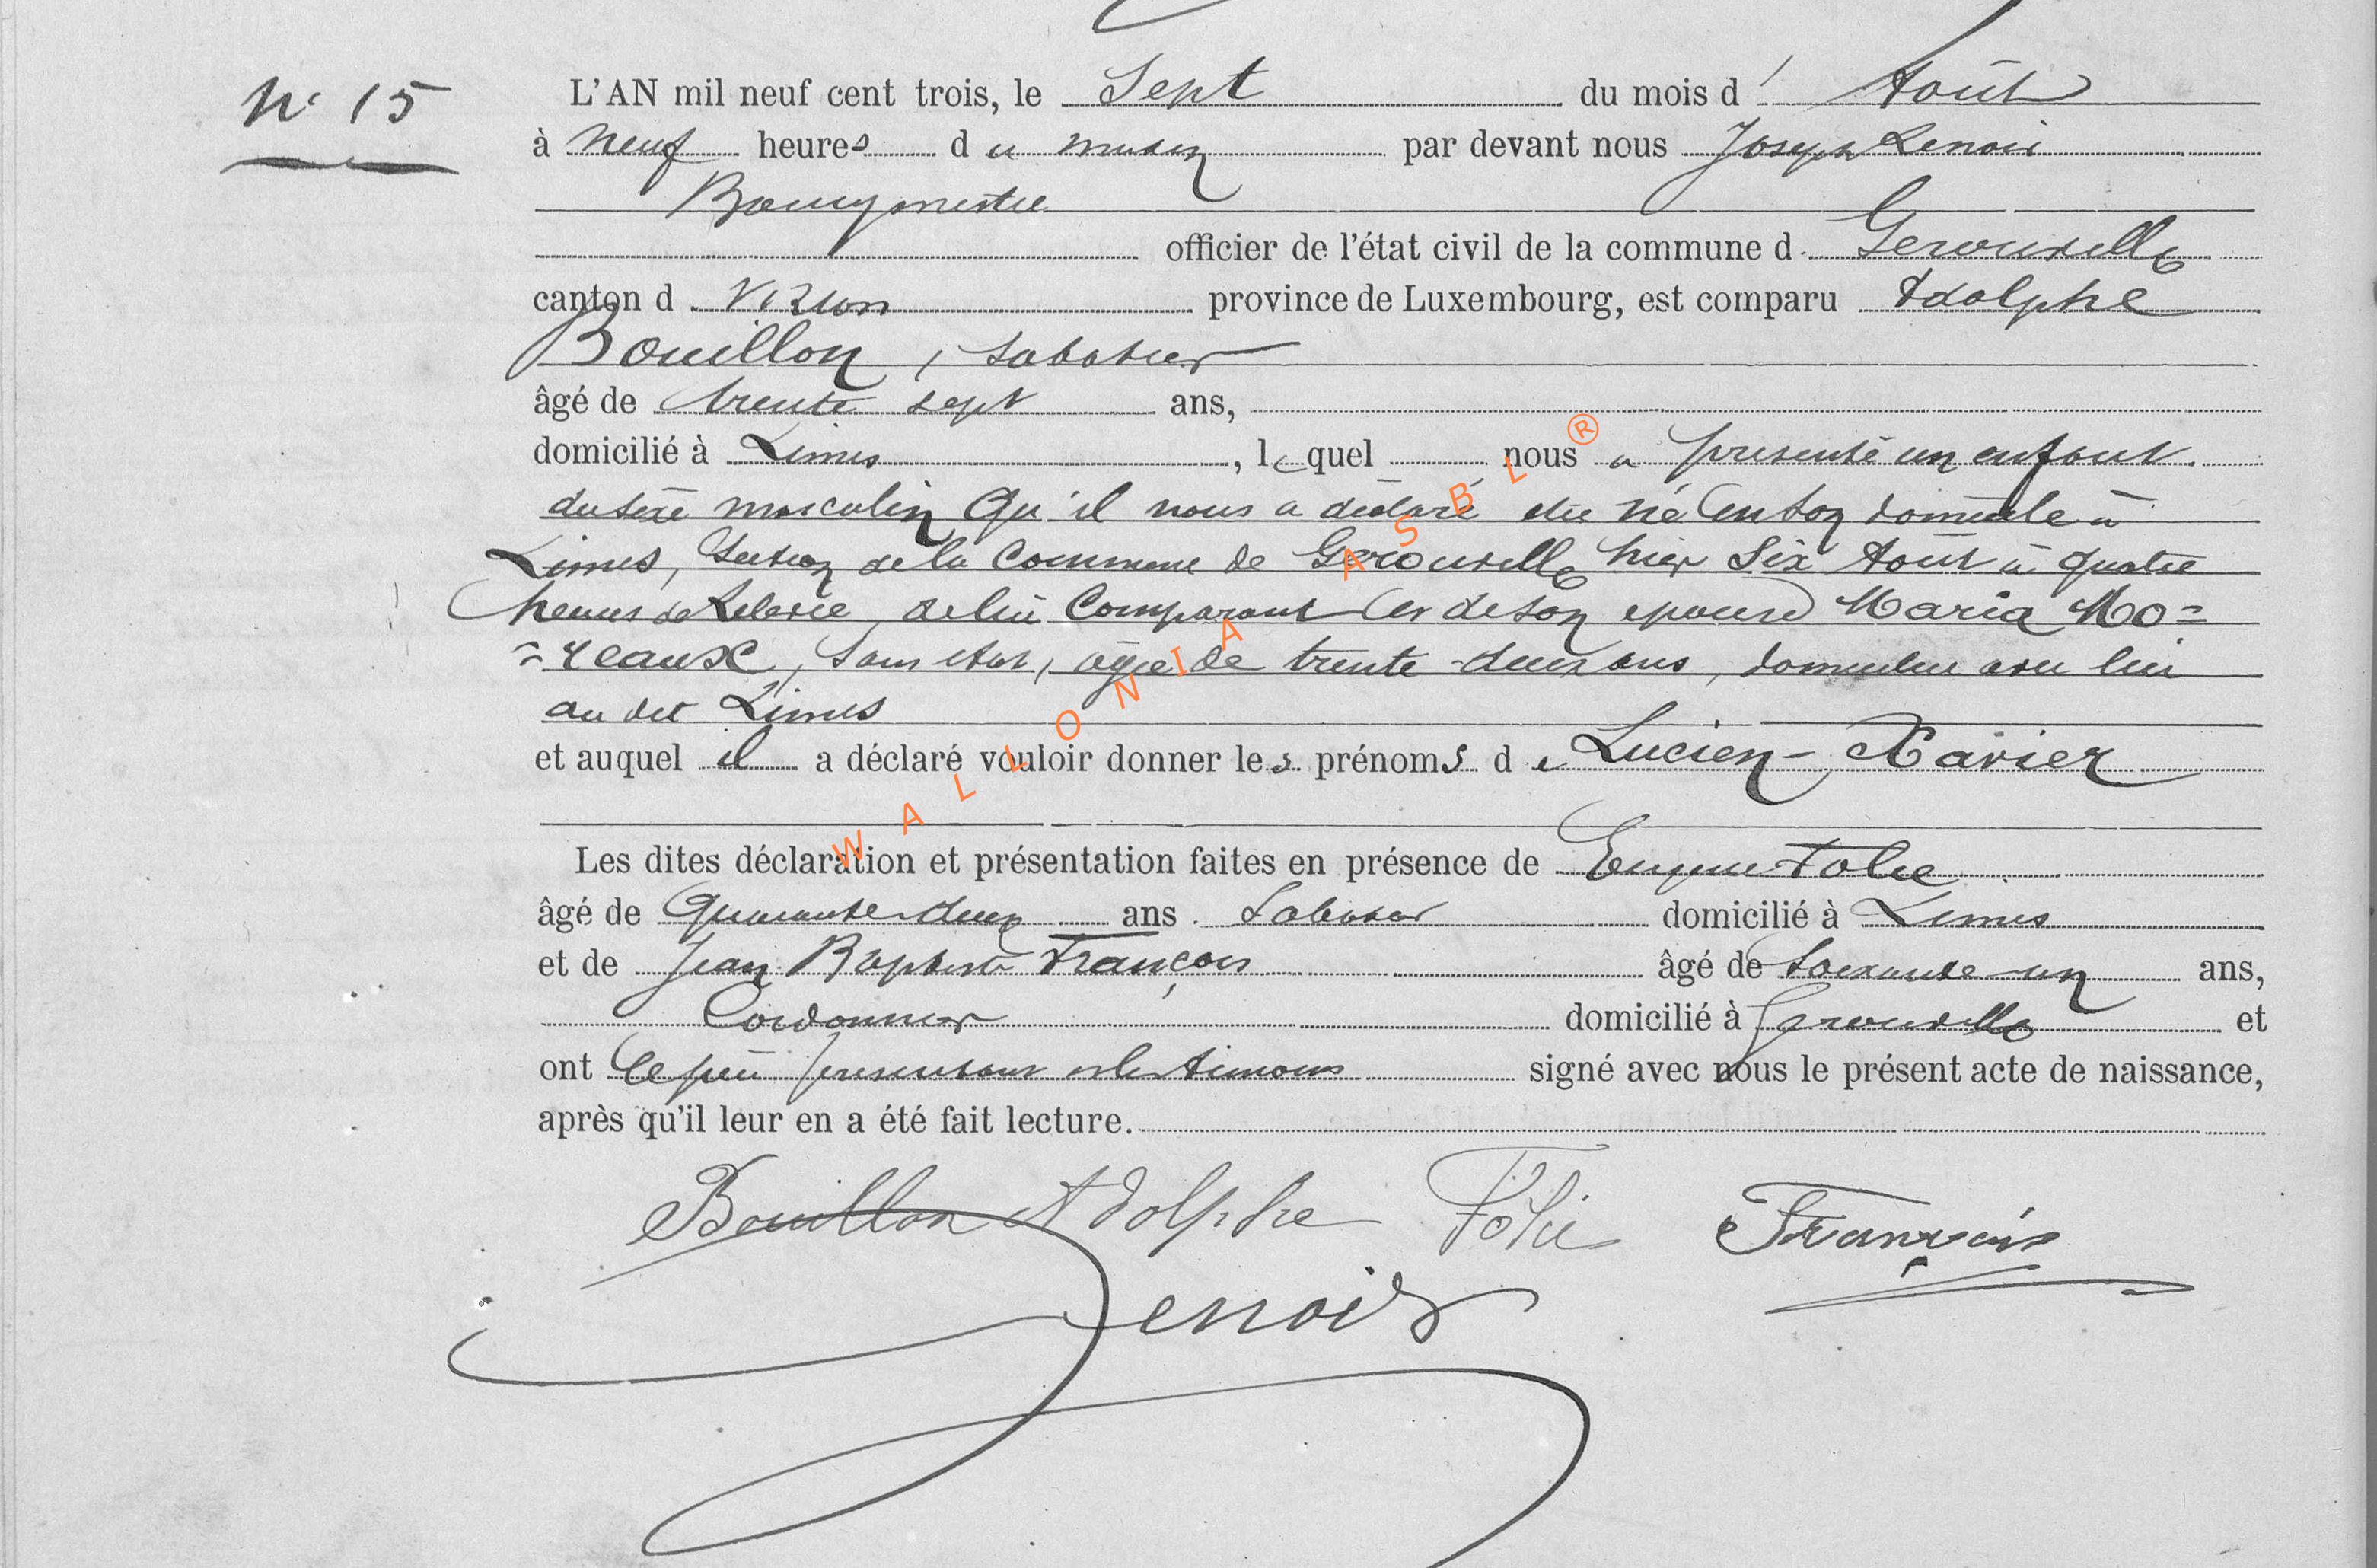 N° 15
L'AN mil neuf cent trois, le Sept du mois d' Août
à neuf heures du matin par devant nous Joseph Lenoir
Bourgmestre
officier de l'état civil de la commune d. Gerouville
canton d Virton province de Luxembourg, est comparu Adolphe
Bouillon, sabotier
âgé de trente sept ans,
domicilié à Limes, lequel nous a présenté un enfant
du sexe masculin qu'il nous a déclaré être né en son domicile à
Limes, Section de la Commune de Gerouville hier Six Août à quatre
heures de relevée, de lui Comparant et de son épouse Maria Mo=
=reaux, sans état, âgée de trente-deux ans, domiciliée avec lui
au dit Limes
et auquel il a déclaré vouloir donner les prénoms de Lucien-Xavier
Les dites déclaration et présentation faites en présence de Eugène Folie
âgé de Quarante-deux ans. Sabotier domicilié à Limes
et de Jean Baptiste François âgé de Soixante-un ans,
Cordonnier domicilié à Gerouville et
ont le père présentant et les témoins signé avec nous le présent acte de naissance,
après qu'il leur en a été fait lecture.
Bouillon Adolphe Folie François
Lenoir
WALLONIA ASBL®